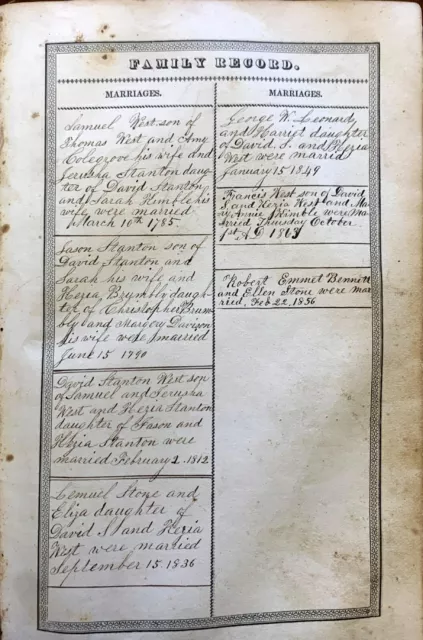 FAMILY RECORD.
MARRIAGES.
Samuel West son of
Thomas West and Amy
Colegrove his wife and
Jerusha Stanton daug-
ter of David Stanton
and Sarah Kimble his
wife were married
March 10th 1785.
Jason Stanton son of
David Stanton and
Sarah his wife and
Hezia Brumbly daugh-
ter of Christopher Brum-
bly and Margery Davison
his wife were married
June 15 1790
David Stanton West son
of Samuel and Jerusha
West and Hezia Stanton
daughter of Jason and
Hezia Stanton were
married February 2. 1812
Lemuel Stone and
Eliza daughter of
David S. and Hezia
West were married
September 15. 1836
MARRIAGES.
George W. Leonard
and Harriet daughter
of David S. and Hezia
West were married
January 15 1849
Francis West son of David
S. and Hezia West and Ma-
ry Annie Kimble were Ma-
rried Thursday October
1st A D 1863
Robert Emmet Bennett
and Ellen Stone were mar
ried, Feb 22. 1856